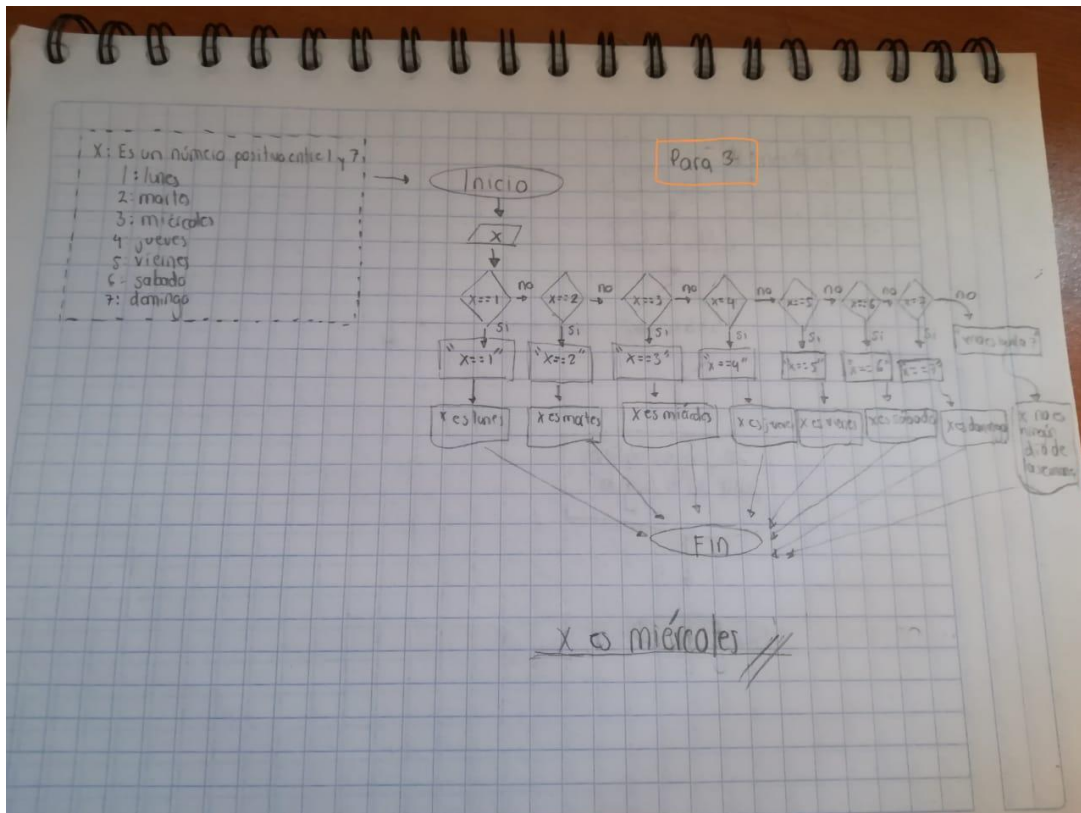 X: Es un número positivo entre 1 y 7:
1: lunes
2: martes
3: miércoles
4 jueves
5 viernes
6: sabado
7: domingo
Para 3
Inicio
X
X==1
no
X==2
no
X==3
no
X==4
no
X==5
no
X==6
no
X==7
no
si
si
si
si
si
si
si
"X==1"
"X==2"
"X==3"
"X==4"
"X==5"
"X==6"
"X==7"
X es lunes
X es martes
X es miércoles
X es
X es
X es sabado
X es domingo
X no es
ningún
día de
la semana
Fin
X es miércoles